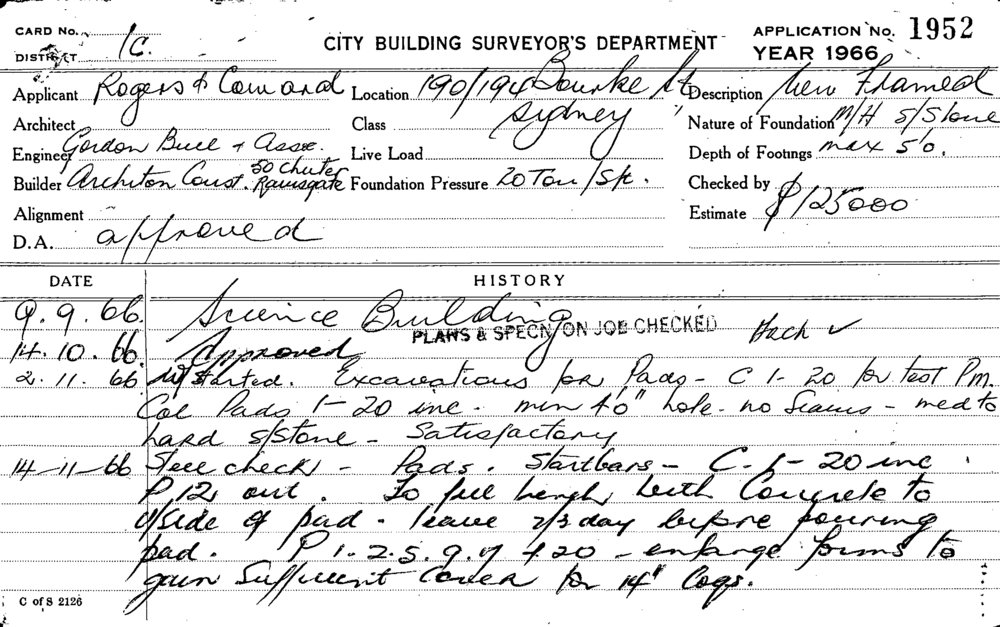 CARD No. 1C.
DISTRICT
CITY BUILDING SURVEYOR'S DEPARTMENT
APPLICATION No. 1952
YEAR 1966
Applicant Rogers & Conrad
Location 190/194 Bourke St
Sydney
Description New Framed
Architect
Class
Nature of Foundation M/H S/Stone
Engineer Gordon Bull & Assc.
Live Load
Depth of Footings max 5'0.
Builder Architon Const. 50 Chuter Ramsgate
Foundation Pressure 20 Ton/Sft.
Checked by
Alignment
Estimate $125000
D.A. approved
DATE HISTORY
9.9.66. Science Building
PLANS & SPECN/ON JOB CHECKED
14.10.66. Approved
2.11.66 started. Excavations for Pads - C 1-20 for test P.m.
Col Pads 1-20 inc. min 4'0" hole. no Seams - med to
hard s/stone - Satisfactory
14-11-66 Steel check - Pads. Startbars - C.1-20 inc.
P,12, out. To fill bench with Concrete to
u/side of pad - leave 2/3 day before pouring
pad. P 1.2.5.9.17 & 20 - enlarge forms to
gain Sufficient Cover for 14" Cogs.
C of S 2126